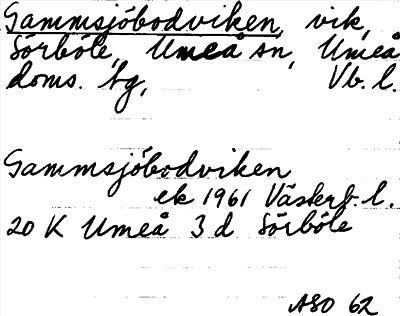 Gammsjöbodviken, vik,
Sörböle, Umeå sn, Umeå
doms. tg, Vb. l.
Gammsjöbodviken
ek 1961 Västerb. l.
20 K Umeå 3 d Sörböle
ASO 62